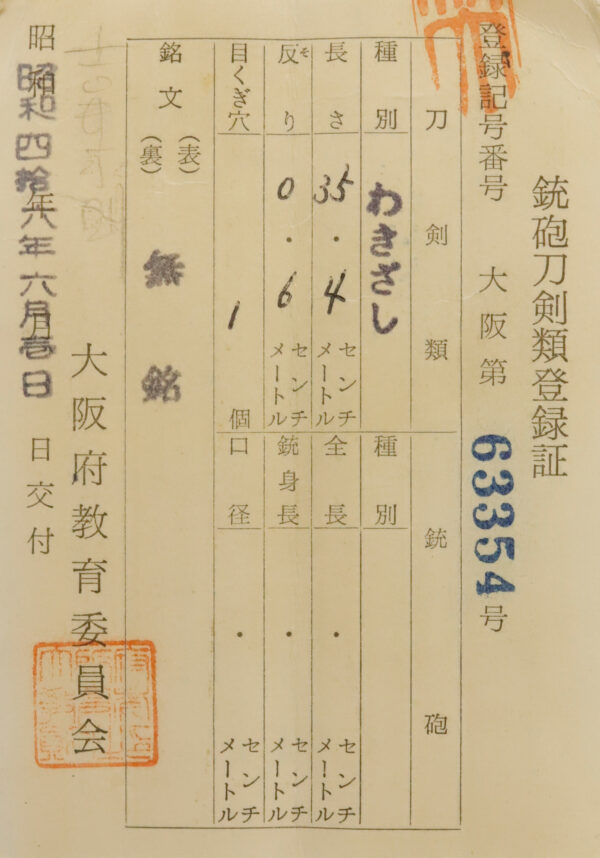 銃砲刀剣類登録証
登録記号番号 大阪第 63354 号
刀剣類 銃砲
種別 わきざし 種別
長さ 35・4 センチメートル 全長 ・ センチメートル
反り そ 0・6 センチメートル 銃身長 ・ センチメートル
目くぎ穴 1 個 口径 ・ センチメートル
銘文 (表)
(裏)
無銘
大阪府教育委員会
昭和 年 月 日交付
昭和四拾八年六月壱日